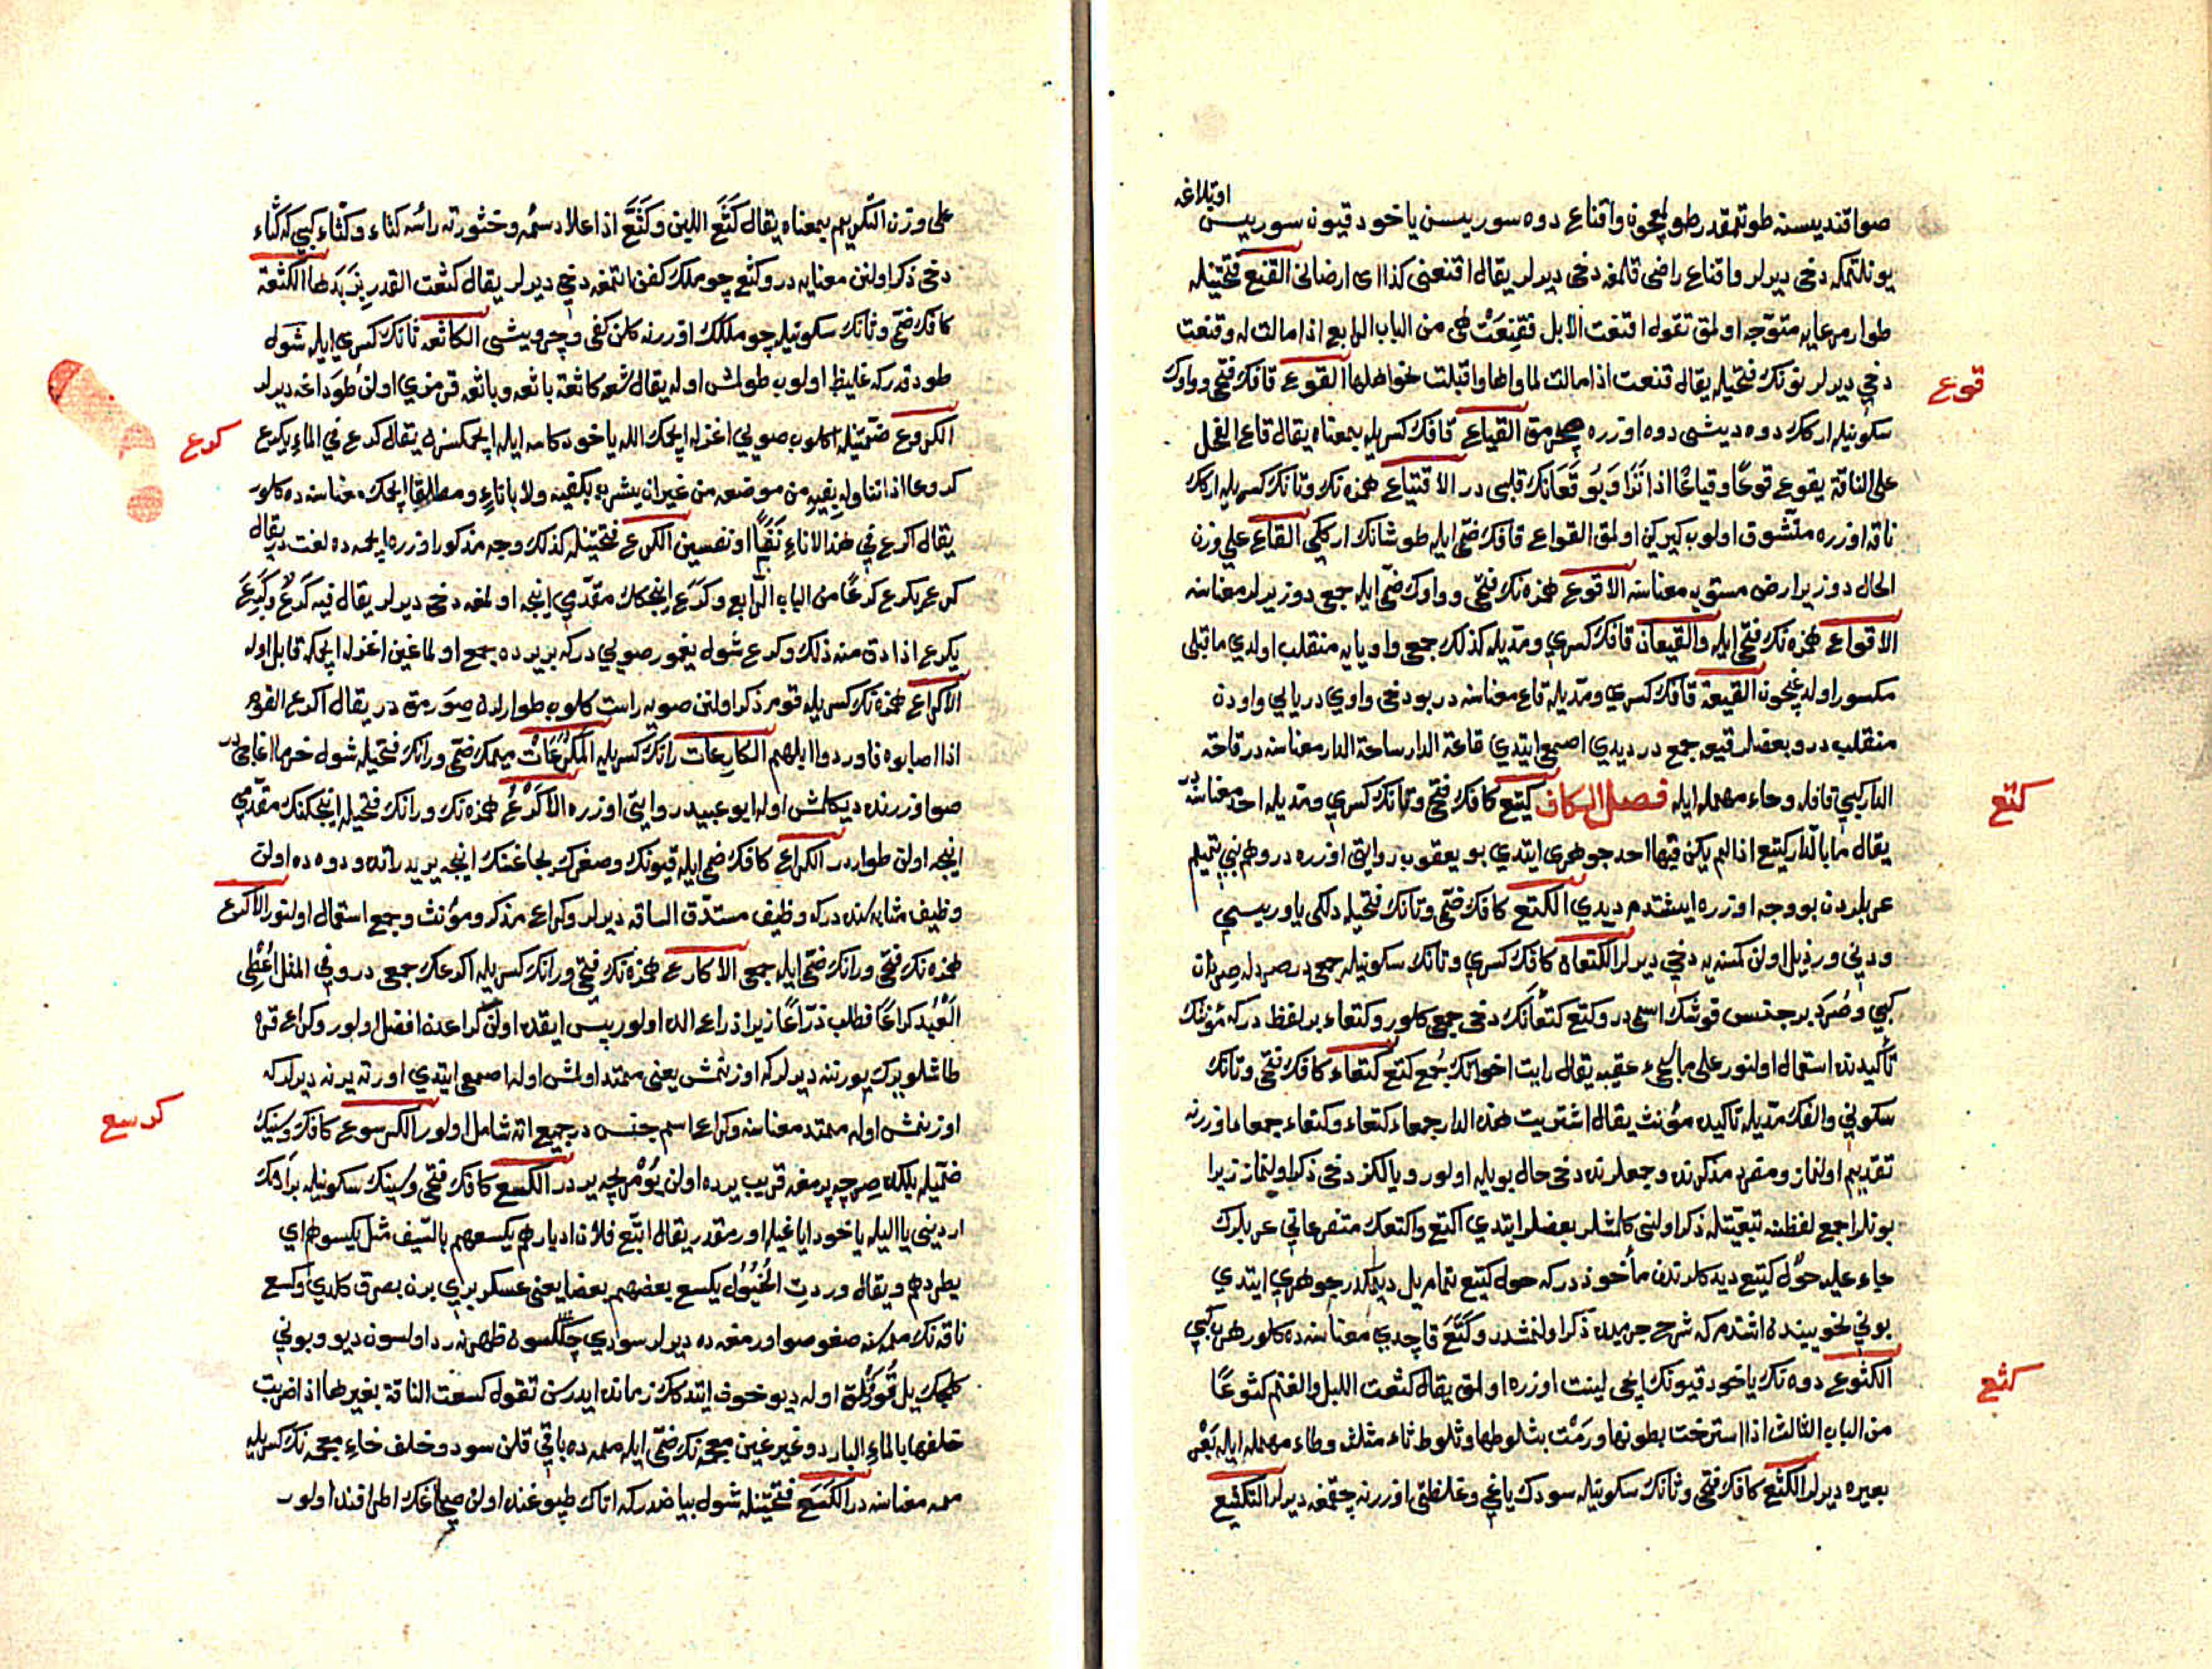 اوتلاغه
صواقنديسنه طوتمقدر طولچون واقناع دوه سوريسن ياخود قيون سوريسن
يونلتمكه دخي ديرلر واقناع راضي قلمغه دخي ديرلر يقال اقنعني كذا اى ارضاني القنع فتحتيله
طوار مرعايه متوجه اولمق تقول اقنعت الابل فقنعت هي من الباب الرابع اذا مالت له وقنعت
دخي ديرلر نونك فتحيله يقال قنعت اذا مالت لمأواها واقبلت نحو اهلها القوع قافك فتحي وواوك
قوع
سكونيله اركك دوه ديشى دوه اوزره چقمق القياع قافك كسريله بمعناه يقال قاع الفحل
على الناقة يقوع قوعا وقياعا اذا نزا وبو قعانك قلبى در الاقتياع همزه نك وتانك كسريله اركك
ناقه اوزره متشوق اولوب كيركين اولمق القواع قافك ضمي ايله طوشانك ارككي القاع على وزن
الحال دوز ير ارض مستويه معناسنه الاقوع همزه نك فتحي وواوك ضمي ايله جمعى دوز يرلر معناسنه
الاقواع همزه نك فتحي ايله والقيعان قافك كسري ومديله كذلك جمعى واو يايه منقلب اولدي ماقبلى
مكسور اولديغيچون القيعة قافك كسري ومديله قاع معناسنه در بو دخي واوي در يايي واودن
منقلب در وبعضلر قيعه جمع در ديدي اصمعي ايتدي قاعة الدار ساحة الدار معناسنه در قاحة
الدار كبي قافله وحاء مهمله ايله فصل الكاف كتيع كافك فتحي وتانك كسري ومديله احد معناسنه در
كتع
يقال ما بالدار كتيع اذا لم يكن فيها احد جوهري ايتدي بو يعقوب روايتى اوزره در وهم بني تميم
عربلردن بو وجه اوزره ايشتدم ديدي الكتع كافك ضمي وتانك فتحيله دلكى ياوريسي
ودني ورذيل اولن كمسنه يه دخي ديرلر الكتعان كافك كسري وتانك سكونيله جمعى در صرد له صردان
كبي وصرد بر جنس قوشك اسمى در وكتع كتعانك دخي جمعى كلور وكتعاء بر لفظ در كه مؤنثك
تأكيدنده استعمال اولنور على ما يجيء عقيبه يقال رايت اخواتك جمع كتع كتعاء كافك فتحي وتانك
سكوني والفك مديله تاكيد مؤنث يقال اشتريت هذه الدار جمعاء كتعاء وكتعاء جمعاء اوزرنه
تقديم اولنماز ومفرد مذكرنده وجمعلرنده دخي حال بويله اولور ويالكز دخي ذكر اولنماز زيرا
بونلر اجمع لفظنه تبعيتله ذكر اولنى كلمشلر بعضلر ايتدي اكتع واكتعك متفرعاتي عربلرك
جاء عليه حول كتيع ديد كلرندن مأخوذ در كه حول كتيع تمام ييل ديمكدر جوهري ايتدي
بوني نحوييندن اشتدم كه شرح جرميده ذكر اولنمشدر وكتع قاچدي معناسنه ده كلور هرب كبي
الكثوع دوه نك ياخود قيونك ايچى لينت اوزره اولمق يقال كثعت الابل والغنم كثوعا
كثع
من الباب الثالث اذا استرخت بطونها ورمت بثلوطها وثلوط ثاء مثلث وطاء مهمله ايله
بعيره ديرلر الكثع كافك فتحي وثانك سكونيله سودك ياغي وغلظتي اوزرنه چقمغه ديرلر التكثيع
على وزن التكريم بمعناه يقال كثع اللبن وكثع اذا علا دسمه وخثورته رأسه كثاء وكثاء كبي كه كثاء
دخي ذكر اولنن معنايه در وكثع چوملك كفن اتمغه دخي ديرلر يقال كثعت القدر بزبدها الكثعة
كافك ضمي وثانك سكونيله چوملكك اوزرنه كلن كفى و الكاثعه ثانك كسري ايله شول
طوداقدر كه غليظ اولوب طولمش اوله يقال شفه كاثعة باثعه وباثعه قرمزي اولن طوداغه ديرلر
الكروع ضمتيله اكلوب صويي اغزله ايچمك اله ياخود كاسه ايله ايچمكسزن يقال كرع في الماء يكرع
كرع
كروعا اذا تناوله بفيه من موضعه من غير ان يشرب بكفيه ولا باناء ومطلقا ايچمك معناسنه ده كلور
يقال اكرع في هذا الاناء نفسا او نفسين الكرع فتحتيله كذلك وجه مذكور اوزره ايچمه ده لغت در يقال
كرع يكرع كرعا من الباب الرابع وكرع اينجكك مقدمي اينجه اولمغه دخي ديرلر يقال فيه كرع وكرع
يكرع اذا دق منه ذلك وكرع شول يغمور صويي در كه بر يرده جمع اولماغين اغزله ايچمكه قابل اوله
الاكراع همزه نك كسريله قوم ذكر اولنن صويه راست كلوب طوارلرن صورمق در يقال اكرع القوم
اذا اصابوه فاوردوا ابلهم الكارعات رانك كسريله المكرعات ميمك ضمي ورانك فتحيله شول خرما اغاجى در
صو اوزرنده ديكلمش اوله ابو عبيد روايتى اوزره الاكرع همزه نك ورانك فتحيله اينجكنك مقدمي
اينجه اولن طوار در الكراع كافك ضمي ايله قيونك وصغرك بجاغنك اينجه يريدر اتده ودوه ده اولن
وظيف مثابه سنده در كه وظيف مستدق الساقه ديرلر وكراع مذكر ومؤنث وجمع استعمال اولنور الاكرع
همزه نك فتحي ورانك ضمي ايله جمعى الاكارع همزه نك فتحي ورانك كسريله اكرعك جمعى در وفي المثل اعطي
العبد كراعا فطلب ذراعا زيرا ذراع الده اولور پس ايقده اولن كراعدن افضل اولور وكراع قره
طاشلو يرك بورتنه ديرلر كه اوزنمش يعنى ممتد اولمش اوله اصمعي ايتدي اورته يرنه ديرلر كه
اوزنمش اوله ممتد معناسنه وكراع اسم جنس در جميع اته شامل اولور الكرسوع كافك وسينك
كرسع
ضميله بلكك صرچه پرمغه قريب يرده اولن يومرجه ير در الكسع كافك فتحي وسينك سكونيله بر آدمك
اردينى يا اليله ياخود اياغيله اورمقدر يقال اتبع فلان ادبارهم يكسعهم بالسيف مثل يكسوهم اي
يطردهم ويقال وردت الخيول يكسع بعضهم بعضا يعنى عسكر بري برن بصرق كلدي وكسع
ناقه نك ممه سنه صغوق صو اورمغه ده ديرلر سودي چكلسون ظهرنه رد اولسون ديو وبوني
كلجك ييل اوله ديو خوف ايتدكلرى زمانده ايدرلر تقول كسعت الناقة بغيرها اذا ضربت
خلفها بالماء البارد وغبر غين معجمه نك ضمي ايله ممه ده باقي قلن سود وخلف خاء معجمه نك كسريله
ممه معناسنه در الكسع فتحتيله شول بياضدر كه اتاك طپوغنده اولن صچاغك اطرافنده اولور